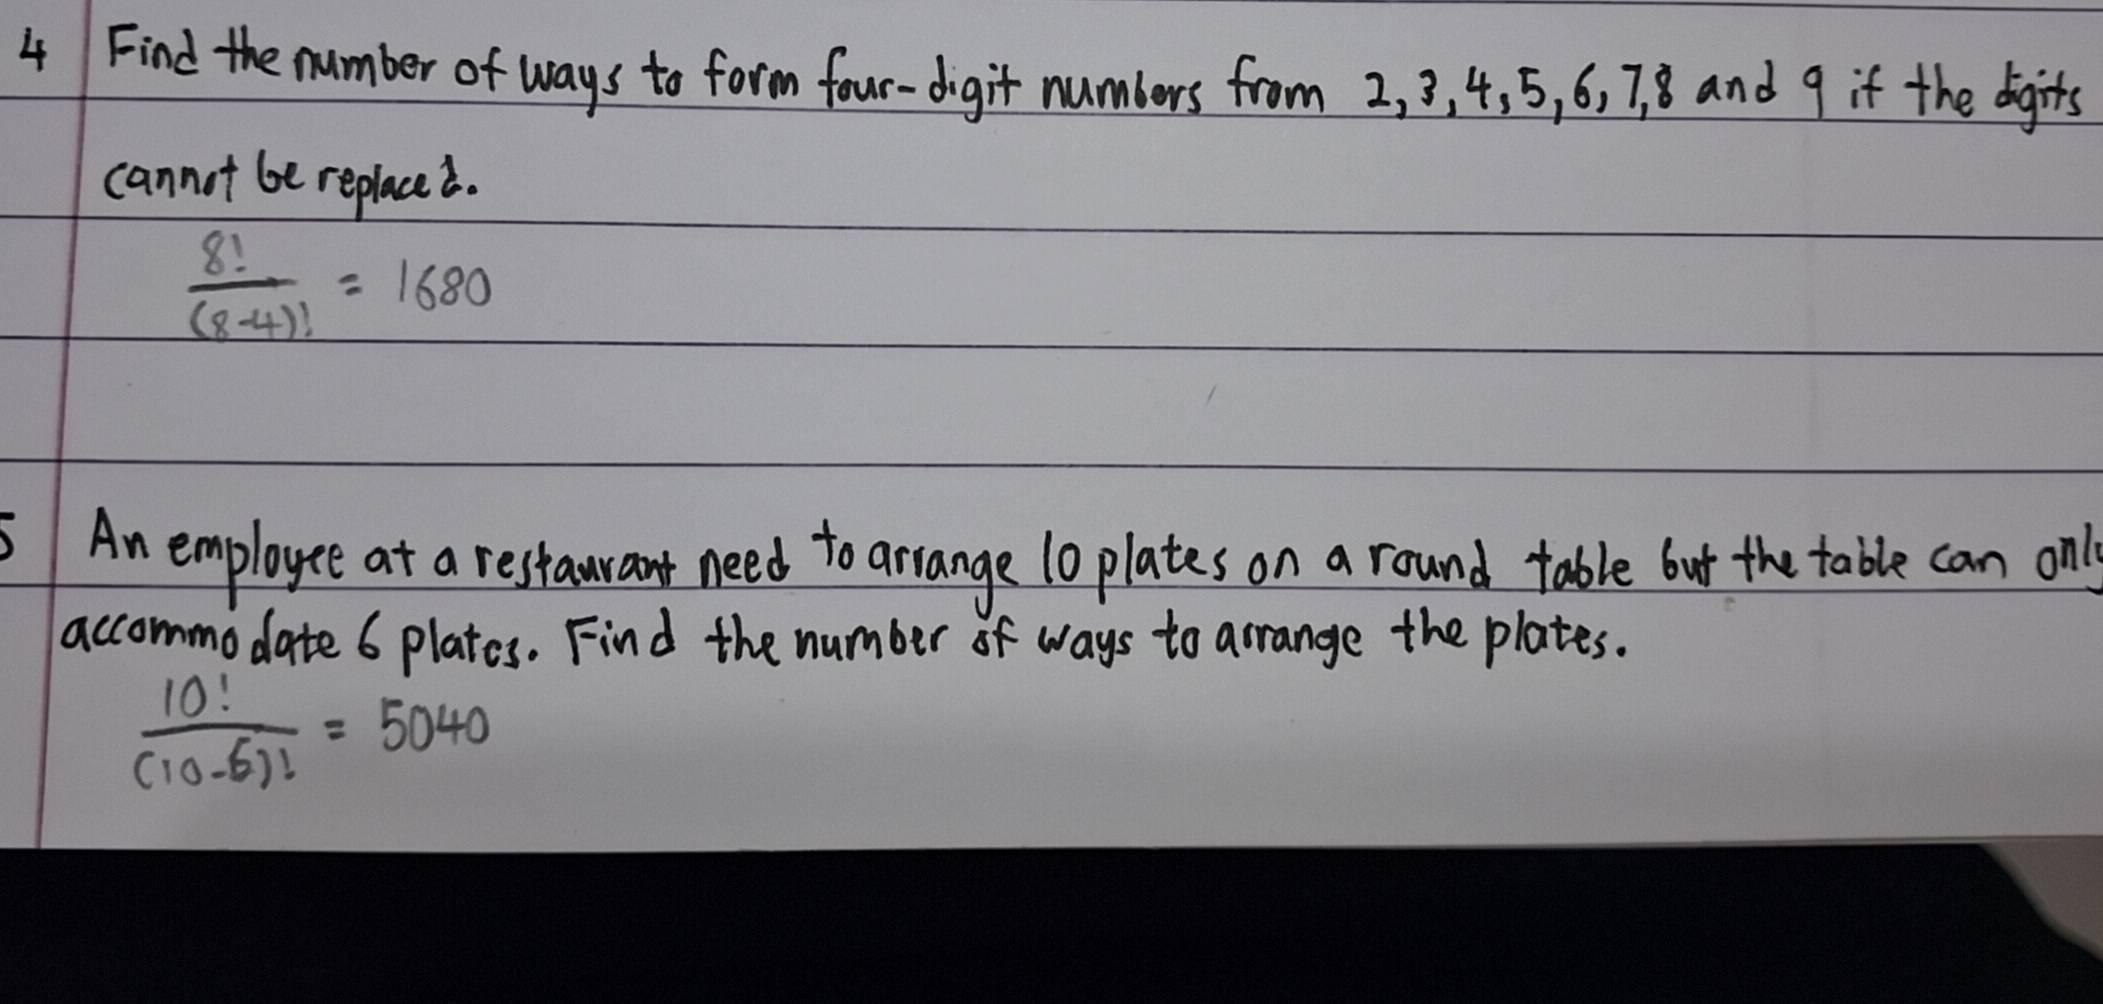 4 Find the number of ways to form four-digit numbers from 2, 3, 4, 5, 6, 7, 8 and 9 if the digits
cannot be replaced.
8!
(8-4)! = 1680
5 An employee at a restaurant need to arrange 10 plates on a round table but the table can only
accommodate 6 plates. Find the number of ways to arrange the plates.
10!
(10-6)! = 5040